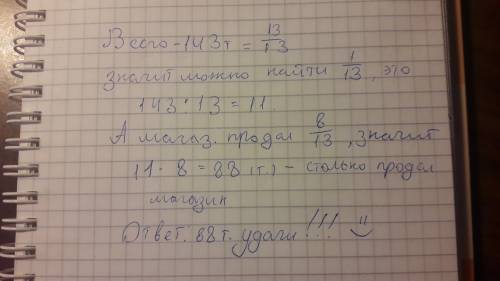 Всего - 143т = 13/13
значит можно найти 1/13, это
143 : 13 = 11
А магаз. продал 8/13, значит
11 · 8 = 88 (т.) - столько продал
магазин
Ответ. 88т. удачи!!! :)